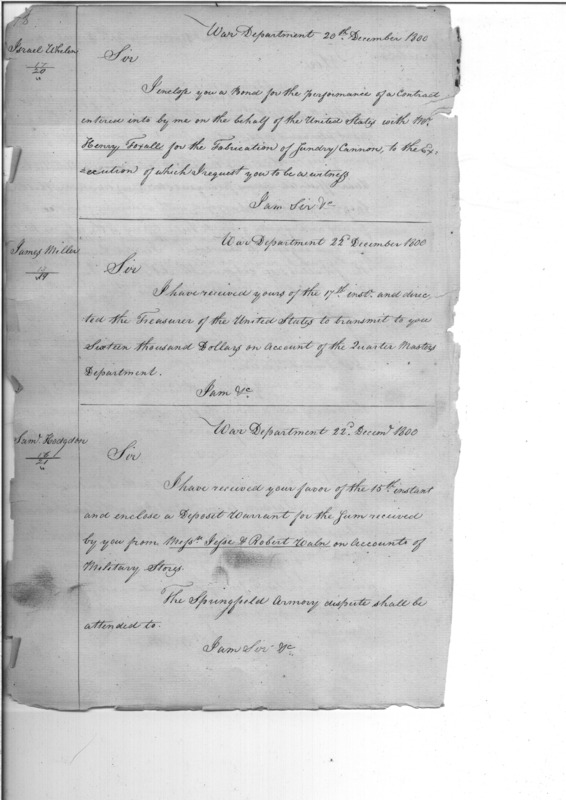 78
War Department 20th. December 1800
Israel Whelen
17
20
Sir
I enclose you a Bond for the performance of a Contract
entered into by me on the behalf of the United States with Mr.
Henry Foxall for the Fabrication of Sundry Cannon, to the Ex-
-ecution of which I request you to be a witness
I am Sir &c
War Department 22d. December 1800
James Miller
19
Sir
I have received yours of the 17th. inst. and direc-
ted the Treasurer of the United States to transmit to you
Sixteen thousand Dollars on Account of the Quarter Masters
Department.
I am &c
War Department 22d. Decemr. 1800
Saml. Hodgdon
16
21
Sir
I have received your favor of the 15th. instant
and enclose a Deposit Warrant for the Sum received
by you from Messrs. Jesse & Robert Waln on Accounts of
Military Stores.
The Springfield Armory dispute shall be
attended to.
I am Sir &c